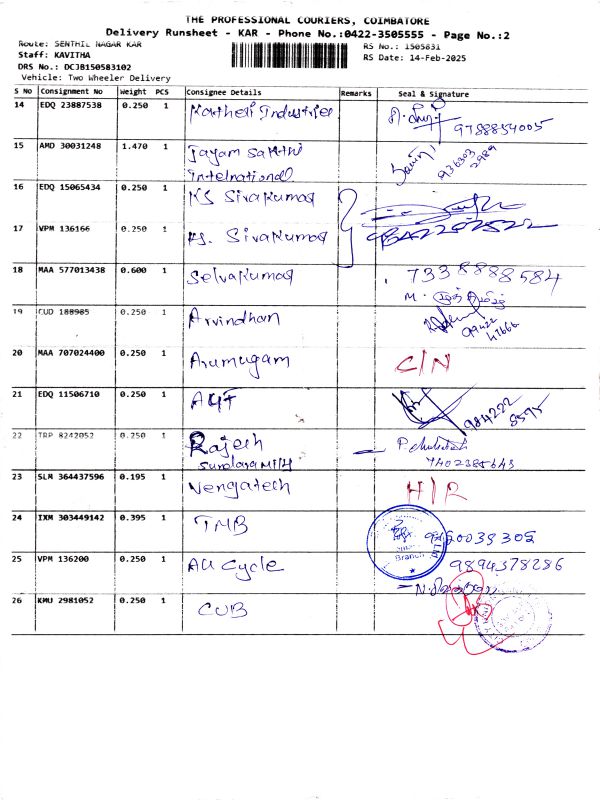 THE PROFESSIONAL COURIERS, COIMBATORE
Delivery Runsheet - KAR - Phone No.:0422-3505555 - Page No.:2
Route: SENTHIL NAGAR KAR
RS No.: 1505831
Staff: KAVITHA
RS Date: 14-Feb-2025
DRS No.: DCJB150583102
Vehicle: Two Wheeler Delivery
S No Consignment No Weight PCS Consignee Details Remarks Seal & Signature
14 EDQ 23887538 0.250 1 Industries
9788854005
15 AMD 30031248 1.470 1 Jayam Sakthi
International
936303
2989
16 EDQ 15065434 0.250 1 KS Sivakumar
17 VPM 136166 0.250 1 KS. Sivakumar
18 MAA 577013438 0.600 1 Selvakumar 7338888584
19 CUD 188985 0.250 1 Arvindhan
99422
47666
20 MAA 707024400 0.250 1 Arumugam C/N
21 EDQ 11506710 0.250 1
984222
8595
22 TRP 8242052 0.250 1 Rajesh
7402385643
23 SLM 364437596 0.195 1 Vengatesh H/R
24 IXM 303449142 0.395 1 TMB
Branch
25 VPM 136200 0.250 1 AU Cycle 9894378286
26 KMU 2981052 0.250 1 CUB